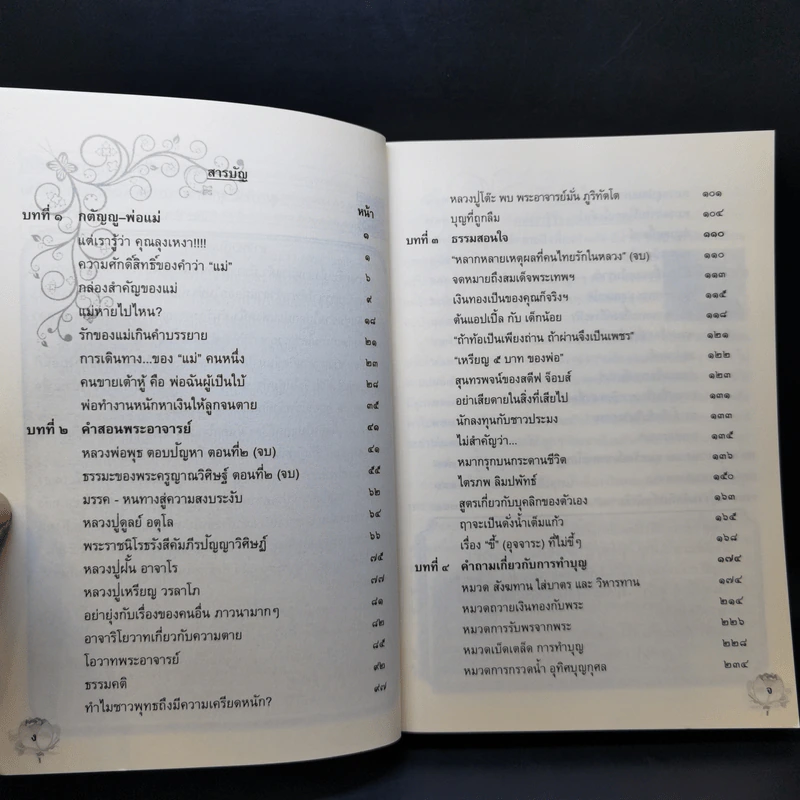 สารบัญ
บทที่ ๑ กตัญญู-พ่อแม่ หน้า
แต่เรารู้ว่า คุณลุงเหงา!!!! ๑
ความศักดิ์สิทธิ์ของคำว่า "แม่" ๑
กล่องสำคัญของแม่ ๖
แม่หายไปไหน? ๙
รักของแม่เกินคำบรรยาย ๑๘
การเดินทาง...ของ "แม่" คนหนึ่ง ๒๑
คนขายเต้าหู้ คือ พ่อฉันผู้เป็นใบ้ ๒๓
พ่อทำงานหนักหาเงินให้ลูกจนตาย ๒๘
บทที่ ๒ คำสอนพระอาจารย์ ๓๕
หลวงพ่อพุธ ตอบปัญหา ตอนที่๒ (จบ) ๔๑
ธรรมะของพระครูญาณวิศิษฏ์ ตอนที่๒ (จบ) ๔๑
มรรค - หนทางสู่ความสงบระงับ ๕๕
หลวงปู่ดูลย์ อตุโล ๖๒
พระราชนิโรธรังสีคัมภีรปัญญาวิศิษฏ์ ๖๔
หลวงปู่ฝั้น อาจาโร ๖๖
หลวงปู่เหรียญ วรลาโภ ๗๕
อย่ายุ่งกับเรื่องของคนอื่น ภาวนามากๆ ๗๗
อาจาริโยวาทเกี่ยวกับความตาย ๘๑
โอวาทพระอาจารย์ ๘๕
ธรรมคติ ๙๒
ทำไมชาวพุทธถึงมีความเครียดหนัก? ๙๗
ง
หลวงปู่โต๊ะ พบ พระอาจารย์มั่น ภูริทัตโต ๑๐๑
บุญที่ถูกลืม ๑๐๔
บทที่ ๓ ธรรมสอนใจ ๑๑๐
"หลากหลายเหตุผลที่คนไทยรักในหลวง" (จบ) ๑๑๐
จดหมายถึงสมเด็จพระเทพฯ ๑๑๓
เงินทองเป็นของคุณก็จริงฯ ๑๑๕
ต้นแอปเปิ้ล กับ เด็กน้อย ๑๑๘
"ถ้าท้อเป็นเพียงถ่าน ถ้าผ่านจึงเป็นเพชร" ๑๒๑
"เหรียญ ๕ บาท ของพ่อ" ๑๒๒
สุนทรพจน์ของสตีฟ จ็อบส์ ๑๒๓
อย่าเสียดายในสิ่งที่เสียไป
นักลงทุนกับชาวประมง ๑๓๓
ไม่สำคัญว่า... ๑๓๕
หมากรุกบนกระดานชีวิต ๑๓๖
ไตรภพ ลิมปพัทธ์ ๑๕๐
สูตรเกี่ยวกับบุคลิกของตัวเอง ๑๖๓
ฤาจะเป็นดั่งน้ำเต็มแก้ว ๑๖๕
เรื่อง "ขี้" (อุจจาระ) ที่ไม่ขี้ๆ ๑๖๘
บทที่ ๔ คำถามเกี่ยวกับการทำบุญ ๑๗๔
หมวด สังฆทาน ใส่บาตร และ วิหารทาน ๑๗๔
หมวดถวายเงินทองกับพระ ๒๑๔
หมวดการรับพรจากพระ ๒๒๖
หมวดเบ็ดเตล็ด การทำบุญ ๒๒๘
หมวดการกรวดน้ำ อุทิศบุญกุศล ๒๓๔
จ